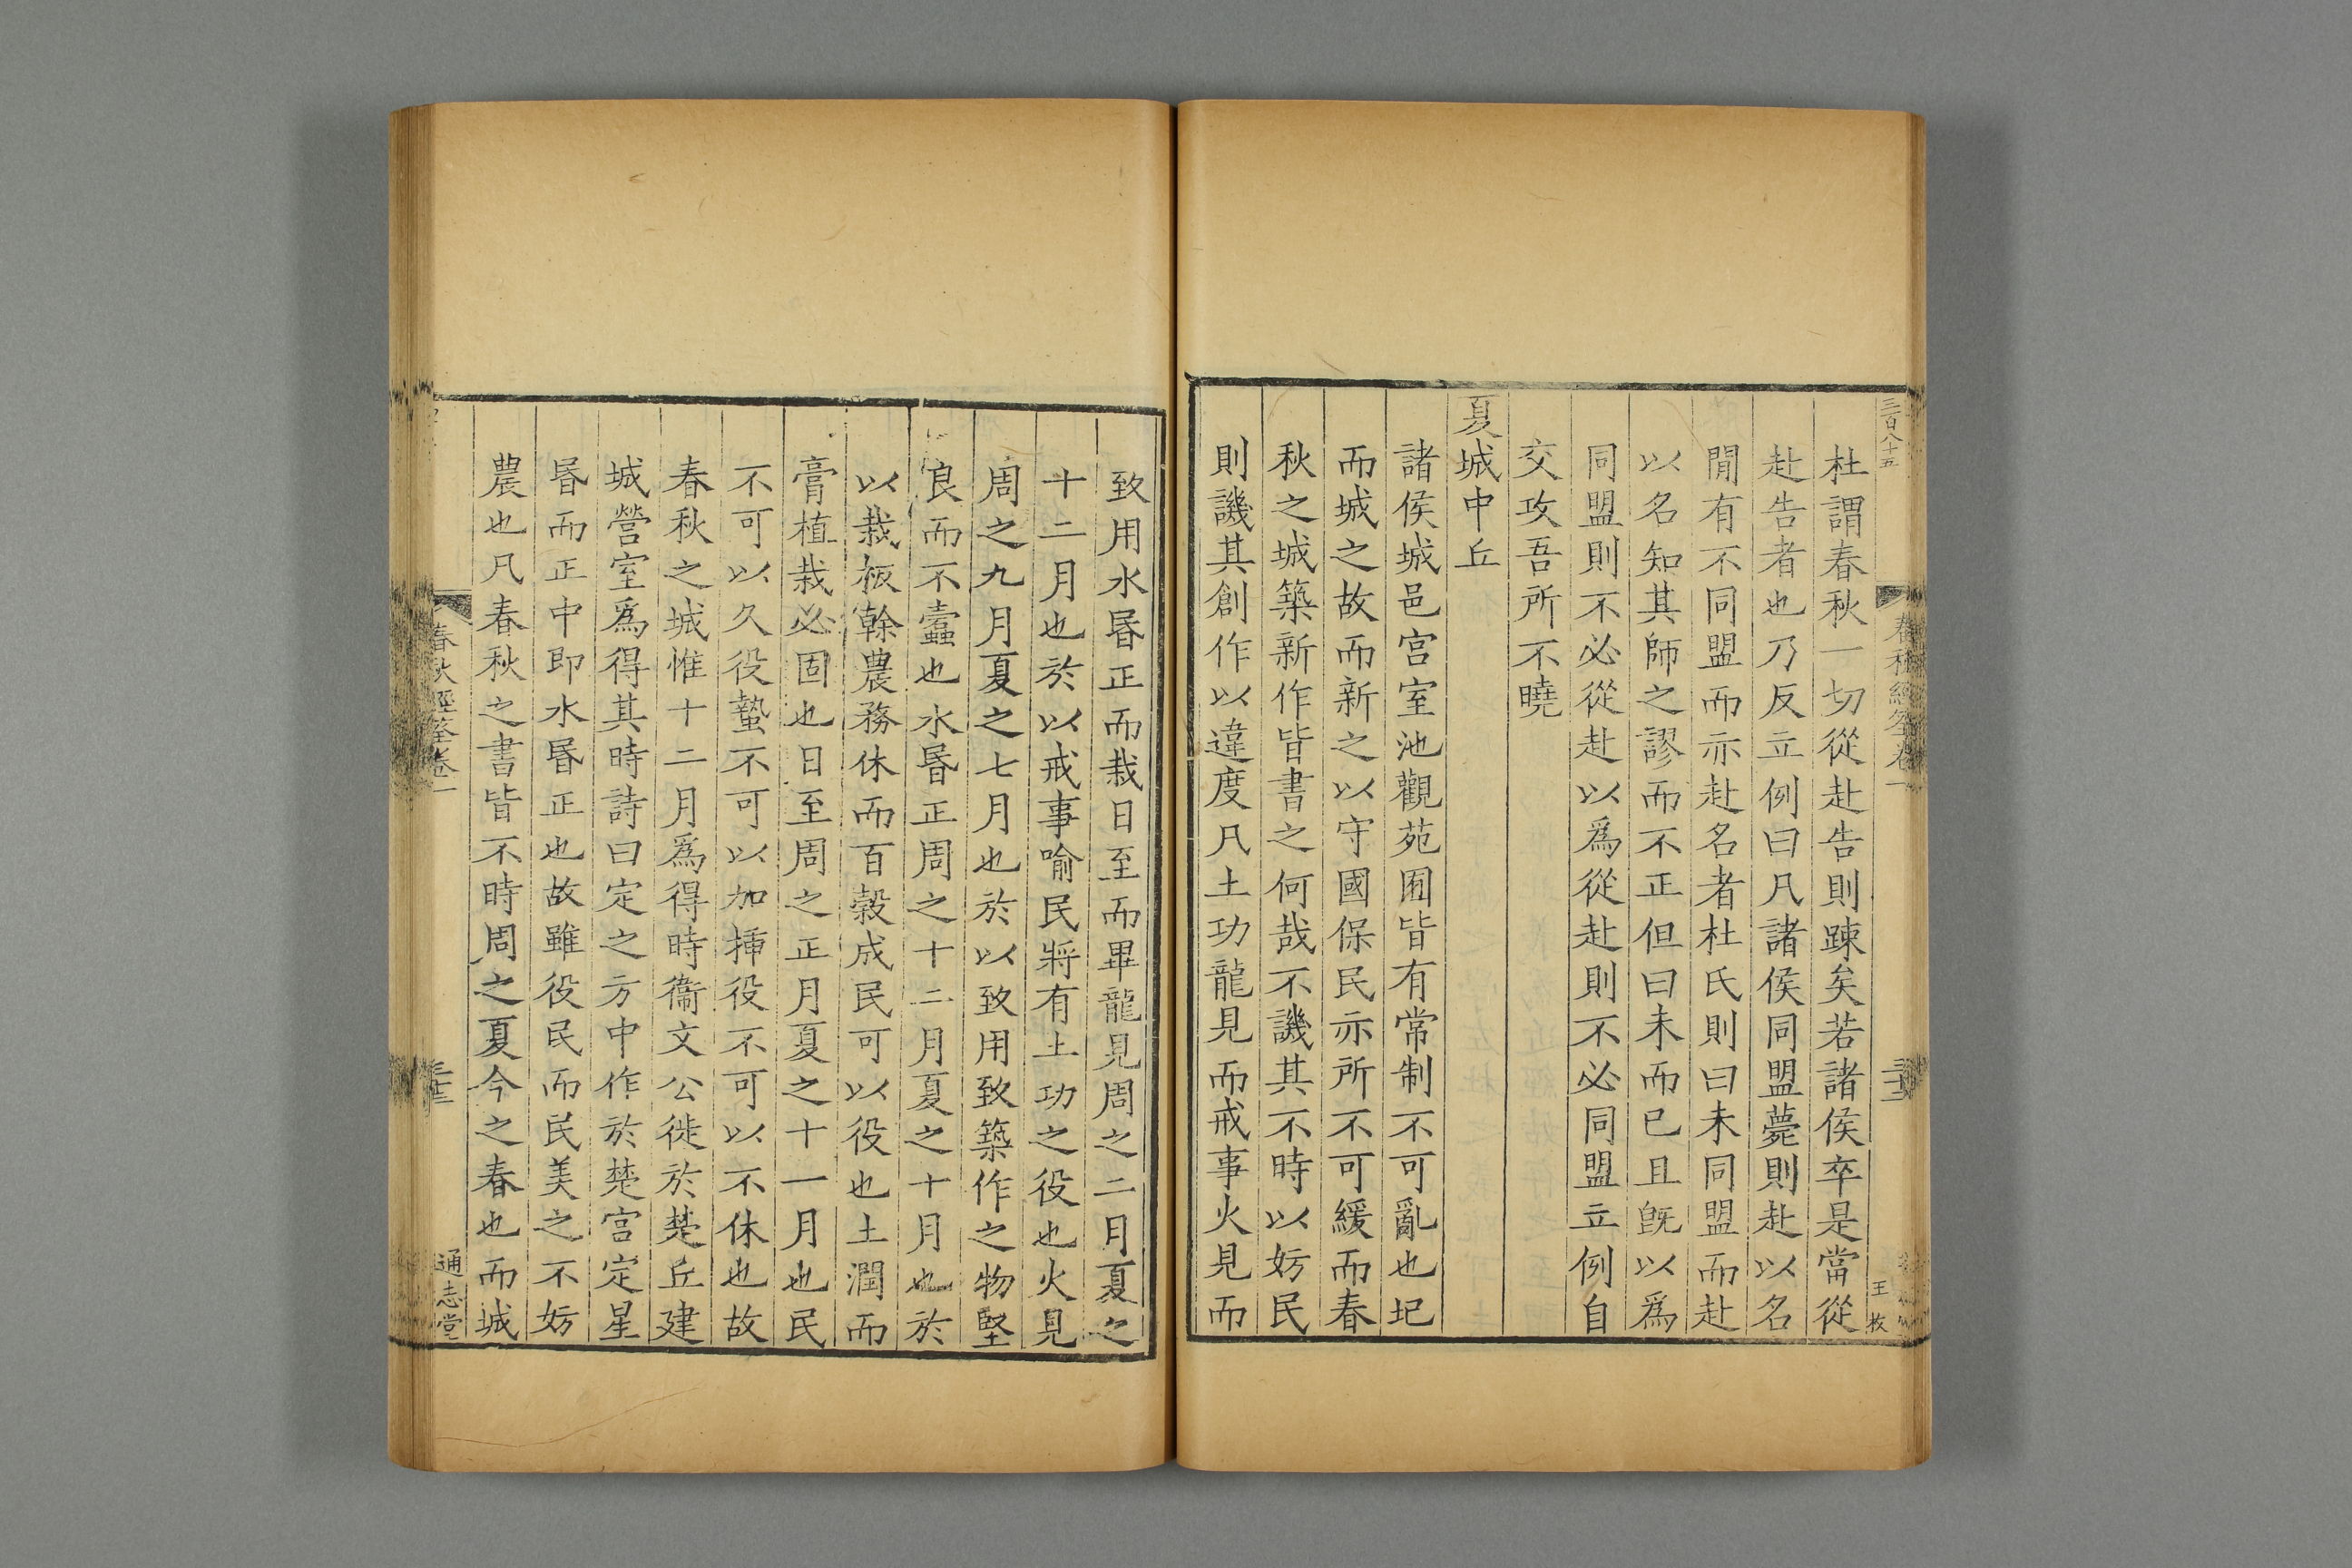 三百八十五
春秋經筌卷一
王枚
杜謂春秋一切從赴告則踈矣若諸侯卒是當從
赴告者也乃反立例曰凡諸侯同盟薨則赴以名
閒有不同盟而亦赴名者杜氏則曰未同盟而赴
以名知其師之謬而不正但曰未而已且旣以爲
同盟則不必從赴以爲從赴則不必同盟立例自
交攻吾所不曉
夏城中丘
諸侯城邑宮室池觀苑囿皆有常制不可亂也圮
而城之故而新之以守國保民亦所不可緩而春
秋之城築新作皆書之何哉不譏其不時以妨民
則譏其創作以違度凡土功龍見而戒事火見而
致用水昬正而栽日至而畢龍見周之二月夏之
十二月也於以戒事喻民將有土功之役也火見
周之九月夏之七月也於以致用致築作之物堅
良而不蠹也水昬正周之十二月夏之十月也於
以栽板榦農務休而百穀成民可以役也土潤而
膏植栽必固也日至周之正月夏之十一月也民
不可以久役蟄不可以加揷役不可以不休也故
春秋之城惟十二月爲得時衞文公徙於楚丘建
城營室爲得其時詩曰定之方中作於楚宮定星
昬而正中即水昬正也故雖役民而民美之不妨
農也凡春秋之書皆不時周之夏今之春也而城
春秋經筌卷一
通志堂